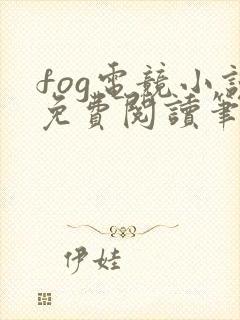 fog電競小說
免費閱讀筆
伊娃